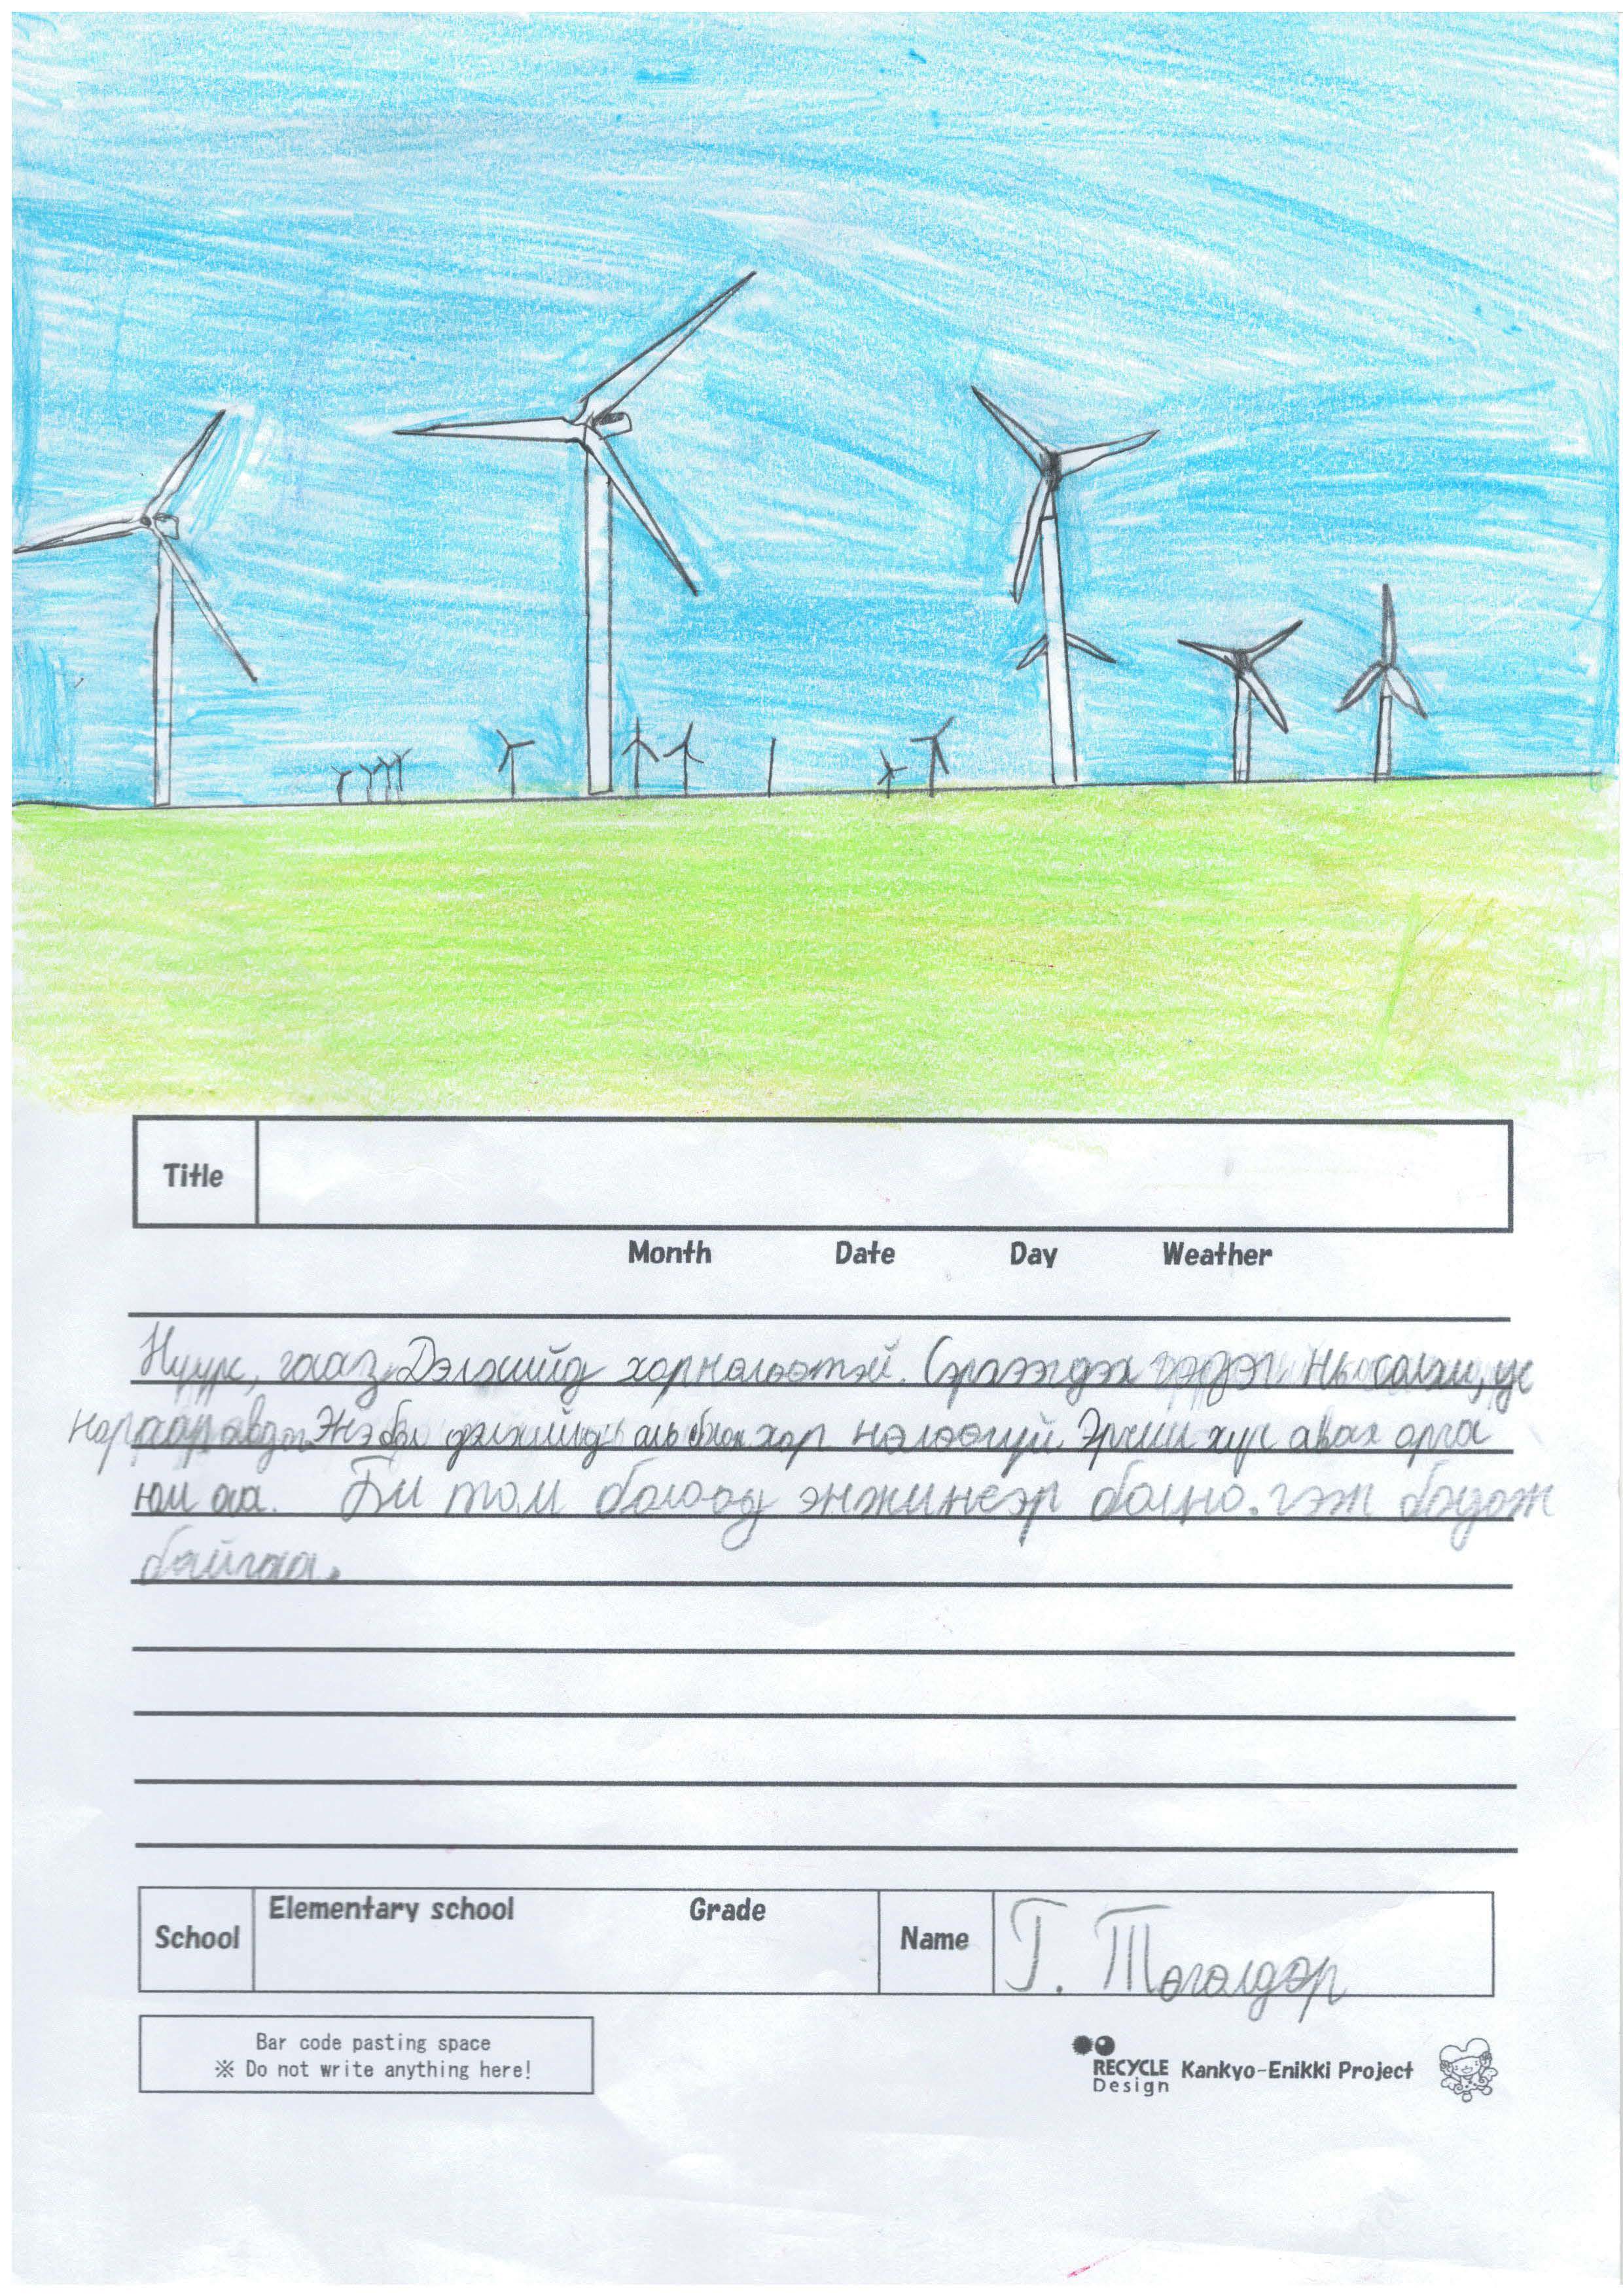 Title
Month Date Day Weather
Нүүрс, гааз Дэлхийд хорнөлөөтэй. Сэргээгдэх гэдэг нь салхи, ус
нараар авдаг Энэ бол дэлхийд аль болох хор нөлөөгүй Эрчим хүч авах арга
юм аа. Би том болоод энжинеэр болно. гэж бодож
байгаа.
School Elementary school Grade Name Г. Төгөлдөр
Bar code pasting space
※ Do not write anything here!
RECYCLE Design Kankyo-Enikki Project